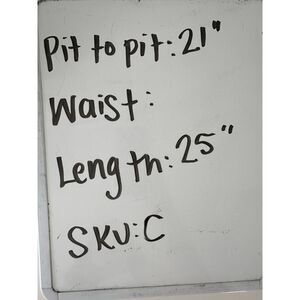 Pit to pit: 21"
Waist:
Length: 25"
SKU: C